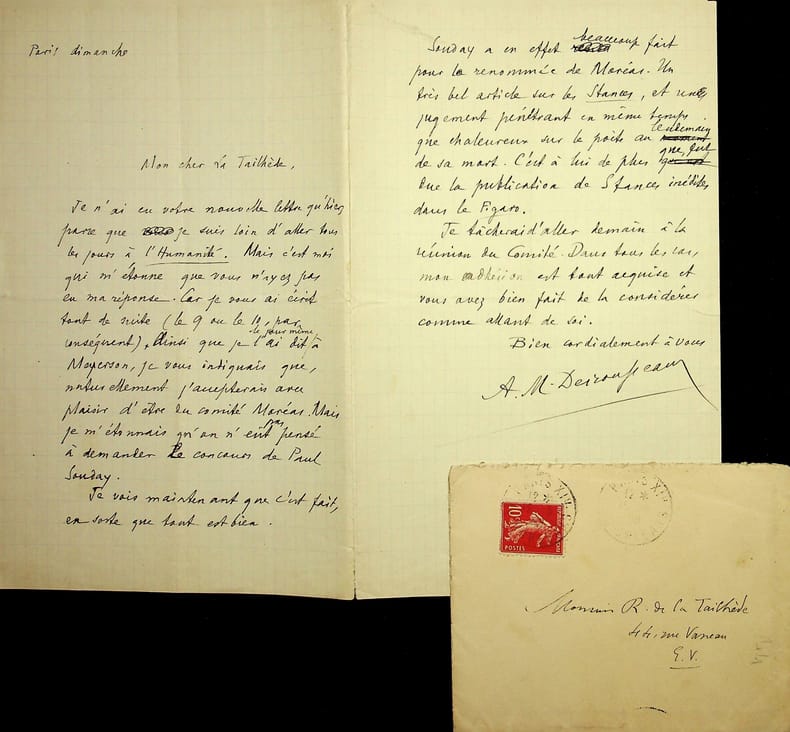 Paris dimanche
Mon cher La Tailhède,
Je n'ai eu votre nouvelle lettre qu'hier,
parce que je suis loin d'aller tous
les jours à l'Humanité. Mais c'est moi
qui m'étonne que vous n'ayez pas
eu ma réponse. Car je vous ai écrit
tout de suite (le 9 ou le 10, par
conséquent). Ainsi que je l'ai dit le jour même à
Meyerson, je vous indiquais que,
naturellement j'accepterais avec
plaisir d'être du comité Moréas. Mais
je m'étonnais qu'on n'eût pas pensé
à demander le concours de Paul
Souday.
Je vois maintenant que c'est fait,
en sorte que tout est bien.
Souday a en effet beaucoup fait
pour la renommée de Moréas. Un
très bel article sur les Stances, et un
jugement pénétrant en même temps
que chaleureux sur le poète au lendemain
de sa mort. C'est à lui de plus que fut
due la publication de Stances inédites
dans le Figaro.
Je tâcherai d'aller demain à la
réunion du Comité. Dans tous les cas,
mon adhésion est tout acquise et
vous avez bien fait de la considérer
comme allant de soi.
Bien cordialement à vous
A. M. Desrousseaux
10
POSTES
PARIS XIV
Monsieur R. de la Tailhède
44, rue Vaneau
E.V.